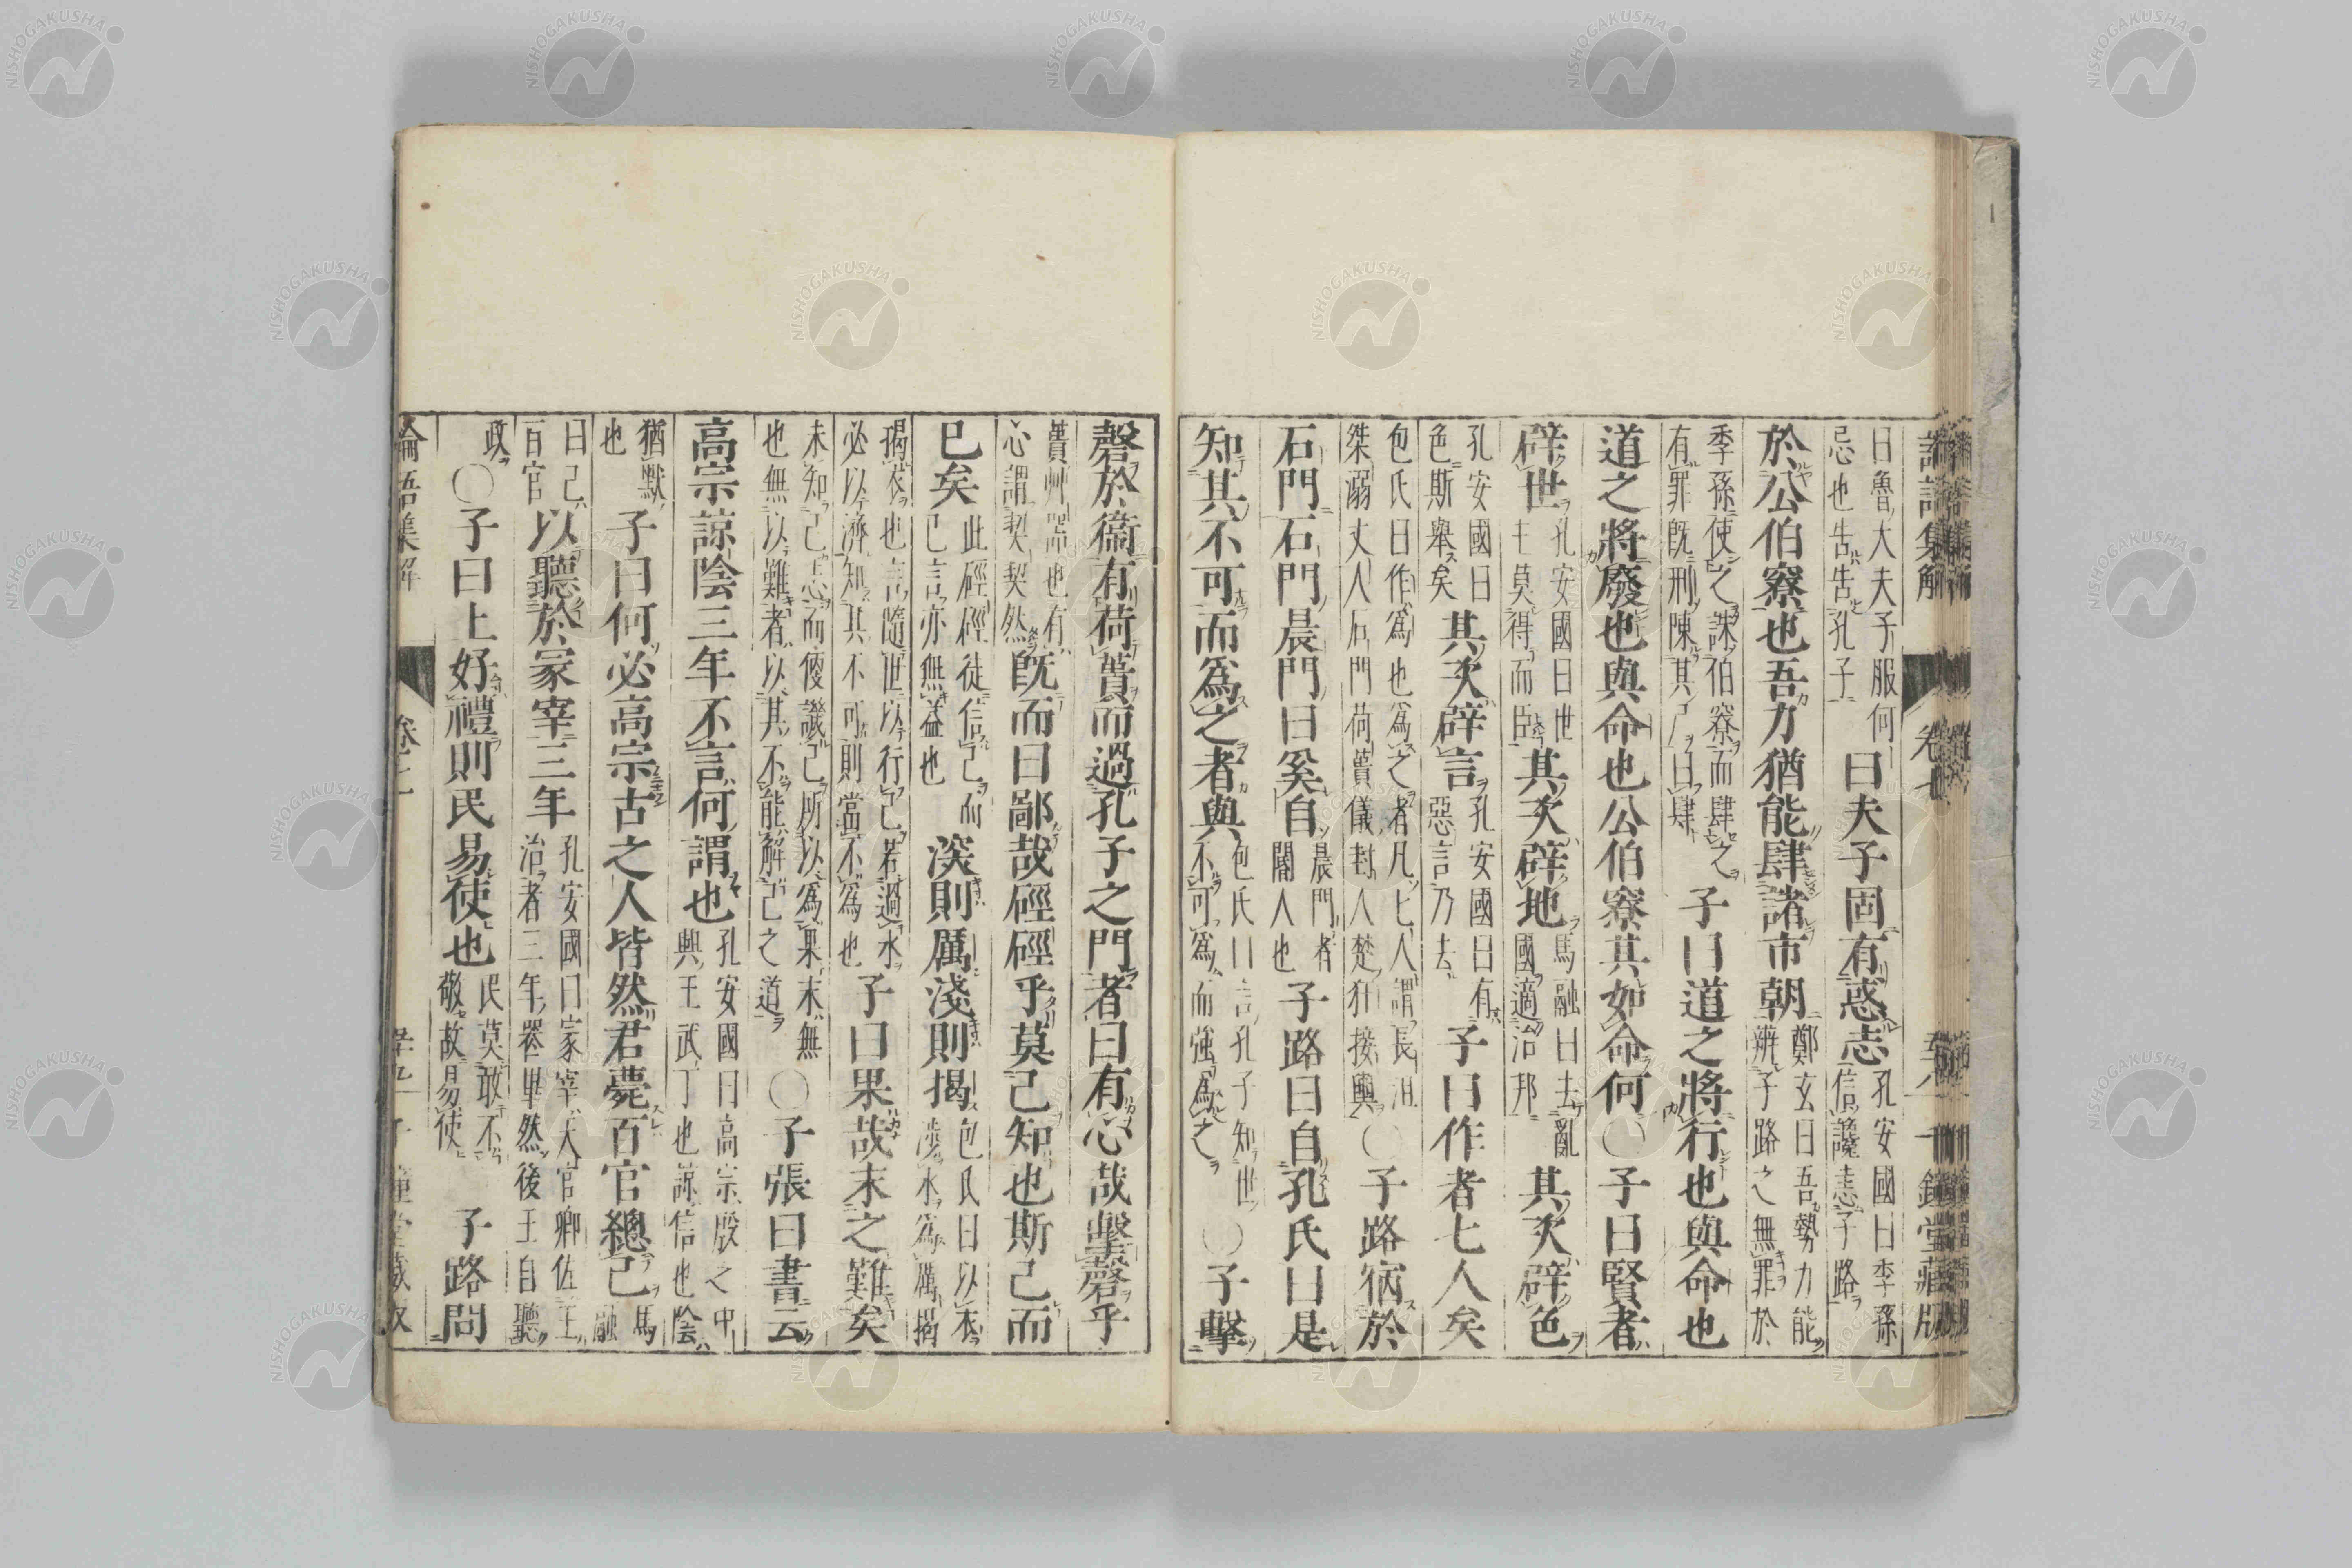 論語集解 卷七 鐘堂藏版
曰魯大夫子服何忌也告告孔子曰夫子固有惑志孔安國曰季孫信讒恚子路
於公伯寮也吾力猶能肆諸市朝鄭玄曰吾勢力能辨子路之無罪於
季孫使之誅伯寮而肆之有罪既刑陳其尸曰肆子曰道之將行也與命也
道之將廢也與命也公伯寮其如命何○子曰賢者
辟世孔安國曰世主莫得而臣其次辟地馬融曰去亂國適治邦其次辟色
孔安國曰色斯舉矣其次辟言孔安國曰有惡言乃去子曰作者七人矣
包氏曰作爲也爲之者凡七人謂長沮桀溺丈人石門荷蕢儀封人楚狂接輿○子路宿於
石門石門晨門曰奚自晨門者閽人也子路曰自孔氏曰是
知其不可而爲之者與包氏曰言孔子知世不可爲而強爲之○子擊
磬於衞有荷蕢而過孔子之門者曰有心哉擊磬乎
蕢艸器也有心謂契契然既而曰鄙哉硜硜乎莫己知也斯己而
已矣此硜硜徒信己而已言亦無益也深則厲淺則揭包氏曰以衣涉水爲厲揭
揭衣也言隨世以行己若過水必以濟知其不可則當不爲也子曰果哉末之難矣
未知己志而便譏己所以爲果末無也無以難者以其不能解己之道○子張曰書云
高宗諒陰三年不言何謂也孔安國曰高宗殷之中興王武丁也諒信也陰
猶默也子曰何必高宗古之人皆然君薨百官總己馬融
曰己百官以聽於冢宰三年孔安國曰冢宰天官卿佐王治者三年喪畢然後王自聽
政○子曰上好禮則民易使也民莫敢不敬故易使子路問
論語集解